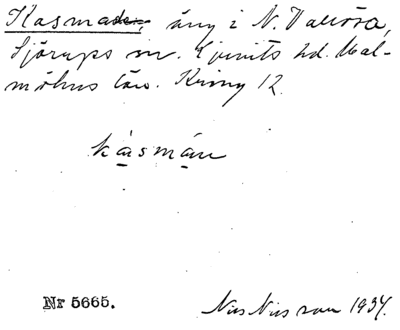 Kasmaden, äng i N. Vallösa,
Sjörups sn. Ljunits hd. Mal-
möhus län. Kring 12.
kasmán
Nr 5665. Nils Nilsson 1934.